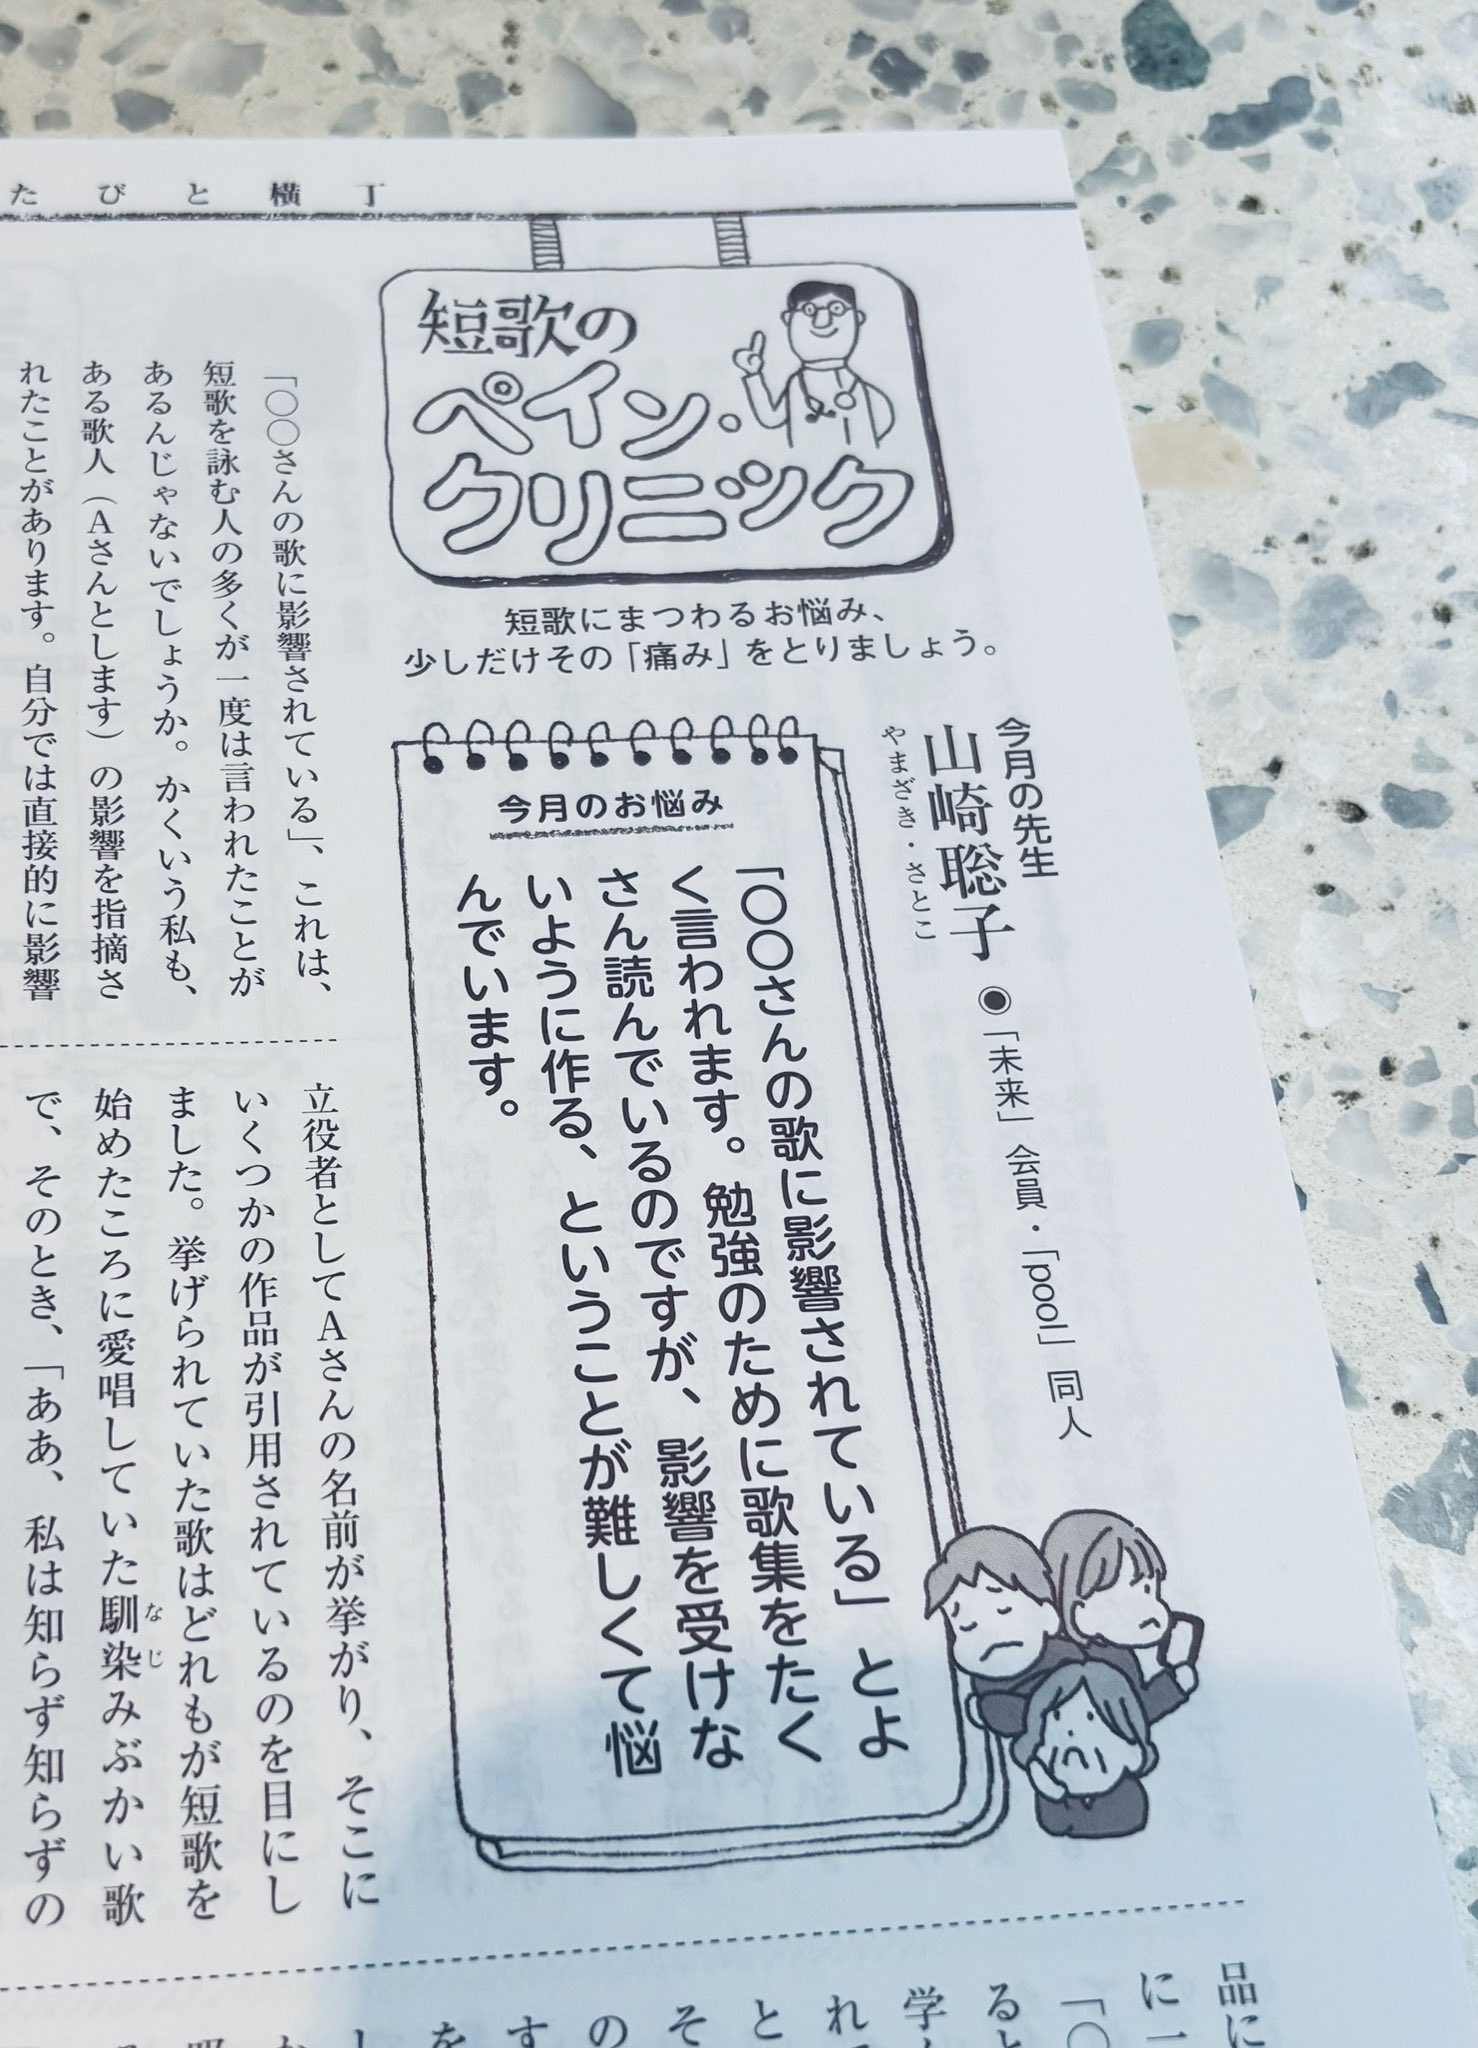 たびと横丁
短歌の
ペイン・
クリニック
短歌にまつわるお悩み、
少しだけその「痛み」をとりましょう。
今月の先生
山崎聡子
やまざき・さとこ
◉「未来」会員・「pool」同人
今月のお悩み
「〇〇さんの歌に影響されている」とよ
く言われます。勉強のために歌集をたく
さん読んでいるのですが、影響を受けな
いように作る、ということが難しくて悩
んでいます。
「〇〇さんの歌に影響されている」、これは、
短歌を詠む人の多くが一度は言われたことが
あるんじゃないでしょうか。かくいう私も、
ある歌人（Aさんとします）の影響を指摘さ
れたことがあります。自分では直接的に影響
立役者としてAさんの名前が挙がり、そこに
いくつかの作品が引用されているのを目にし
ました。挙げられていた歌はどれもが短歌を
始めたころに愛唱していた馴染みぶかい歌
なじ
で、そのとき、「ああ、私は知らず知らずの
品に
に一
「〇
ると
学
れ
と
そ
の
す
を
し